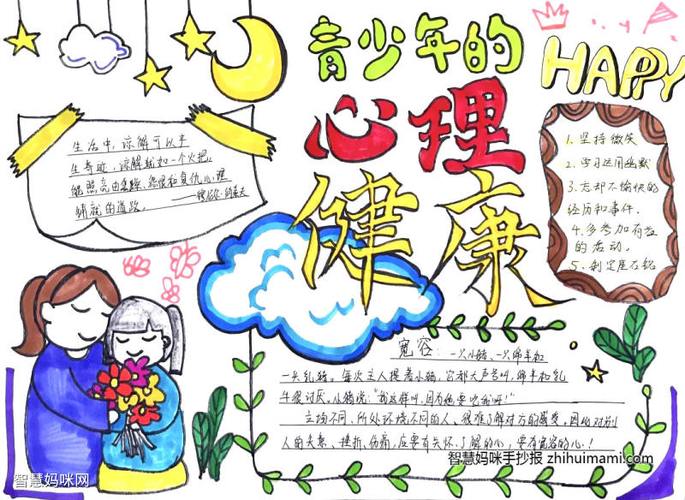 青少年的
心理
健康
HAPPY
生活中，谅解可以产
生奇迹，谅解就如一个火把，
能照亮由焦躁、怨恨和复仇心理
铺就的道路。
1. 坚持微笑
2. 学习运用幽默
3. 忘却不愉快的
经历和事件.
4. 多参加有益
的活动。
5.
宽容：一只小猪、一只绵羊和
一头乳猪。每次主人捉着小猪，它都大声号叫，绵羊和乳
牛很讨厌。小猪说："我这样叫，因为他要吃我呀！"
立场不同、所处环境不同的人，很难了解对方的感受，因此对别
人的失意、挫折、伤痛，应要有关怀、了解的心，要有宽容的心！
智慧妈咪手抄报 zhihuimami.com
智慧妈咪网